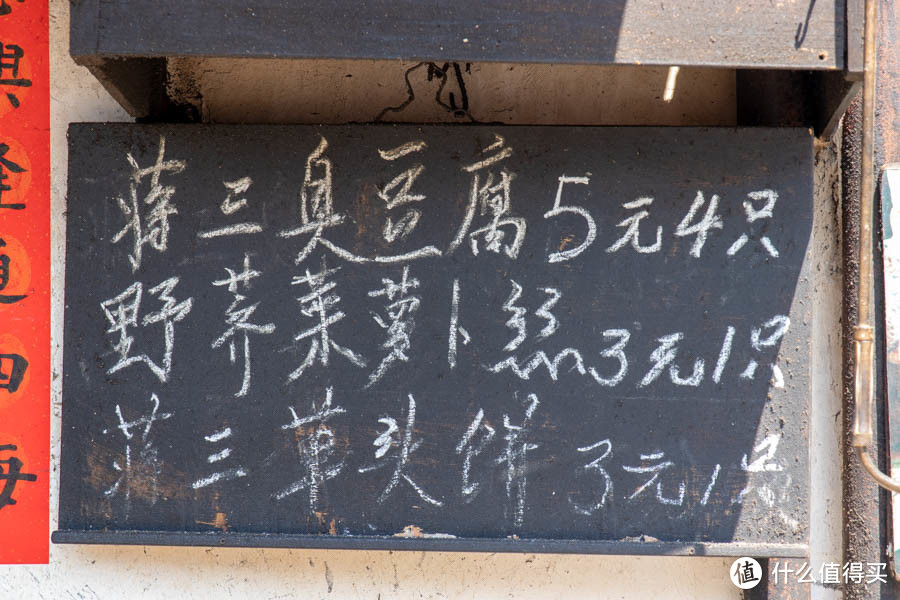 興隆通四海
蒋三臭豆腐5元4只
野荠菜萝卜絲3元1只
蒋三草头饼3元1只
值 什么值得买